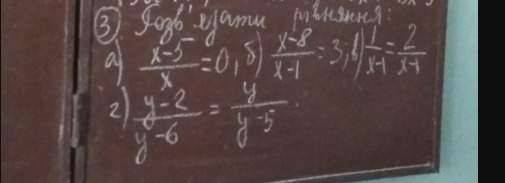 ③ Розв'язати рівняння:
а) (x-5)/x = 0, б) (x-8)/(x-1) = 3; в) 1/(x-1) = 2/(x-1)
г) (y-2)/(y-6) = y/(y-5).